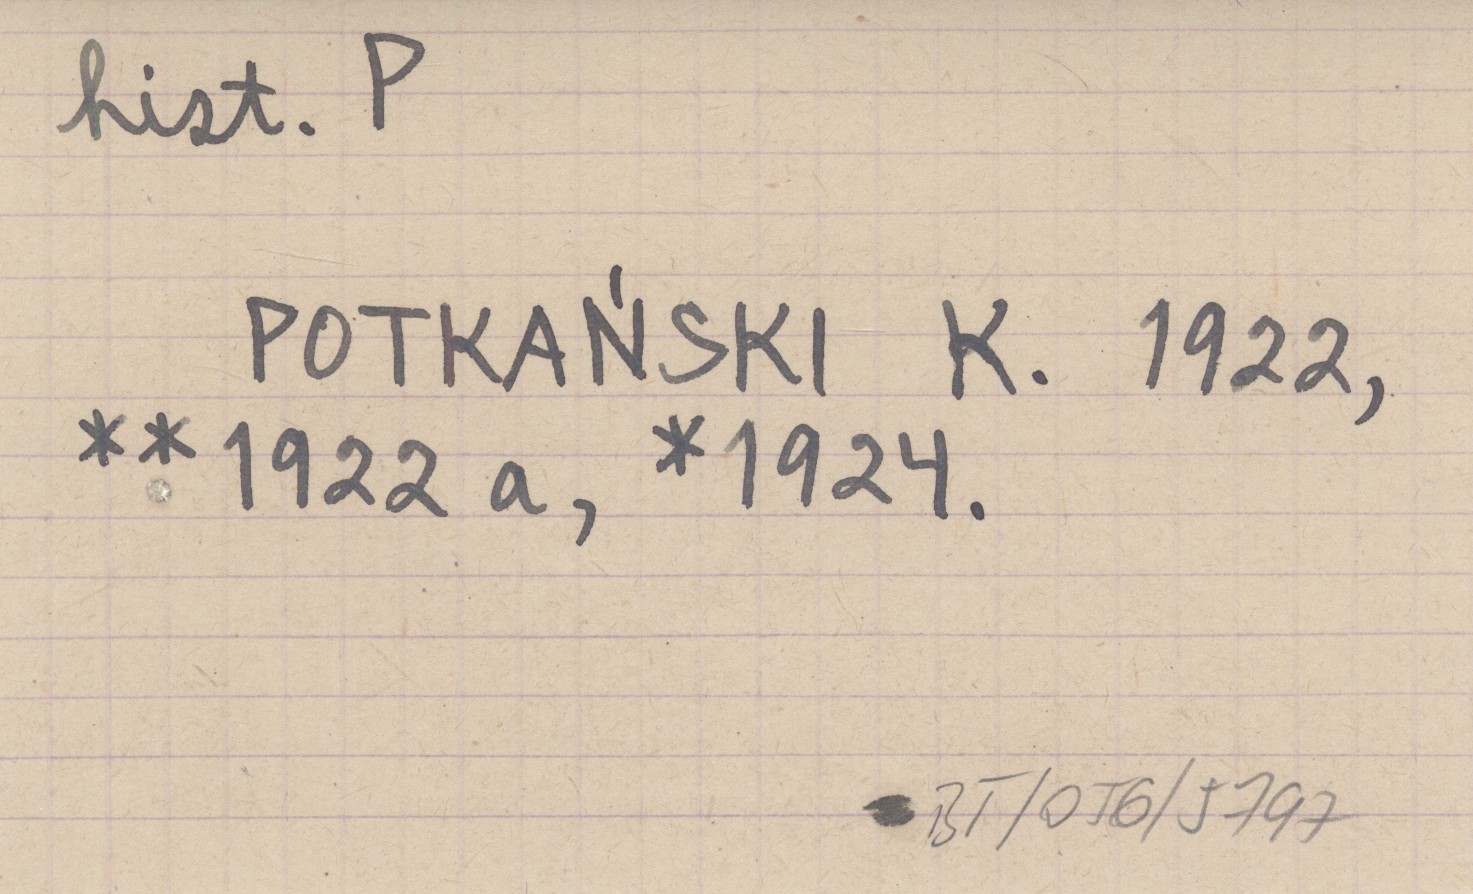 hist. P
POTKAŃSKI K. 1922,
**1922 a, *1924.
BT/OJG/5797